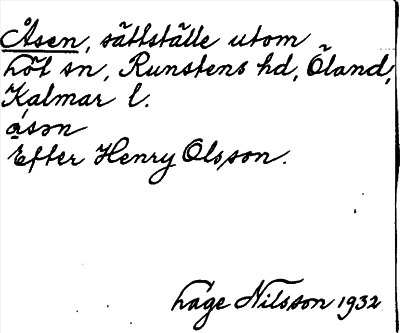 Åsen, sättställe utom
Löt sn, Runstens hd, Öland,
Kalmar l.
åsən
Efter Henry Olsson.
Lage Nilsson 1932